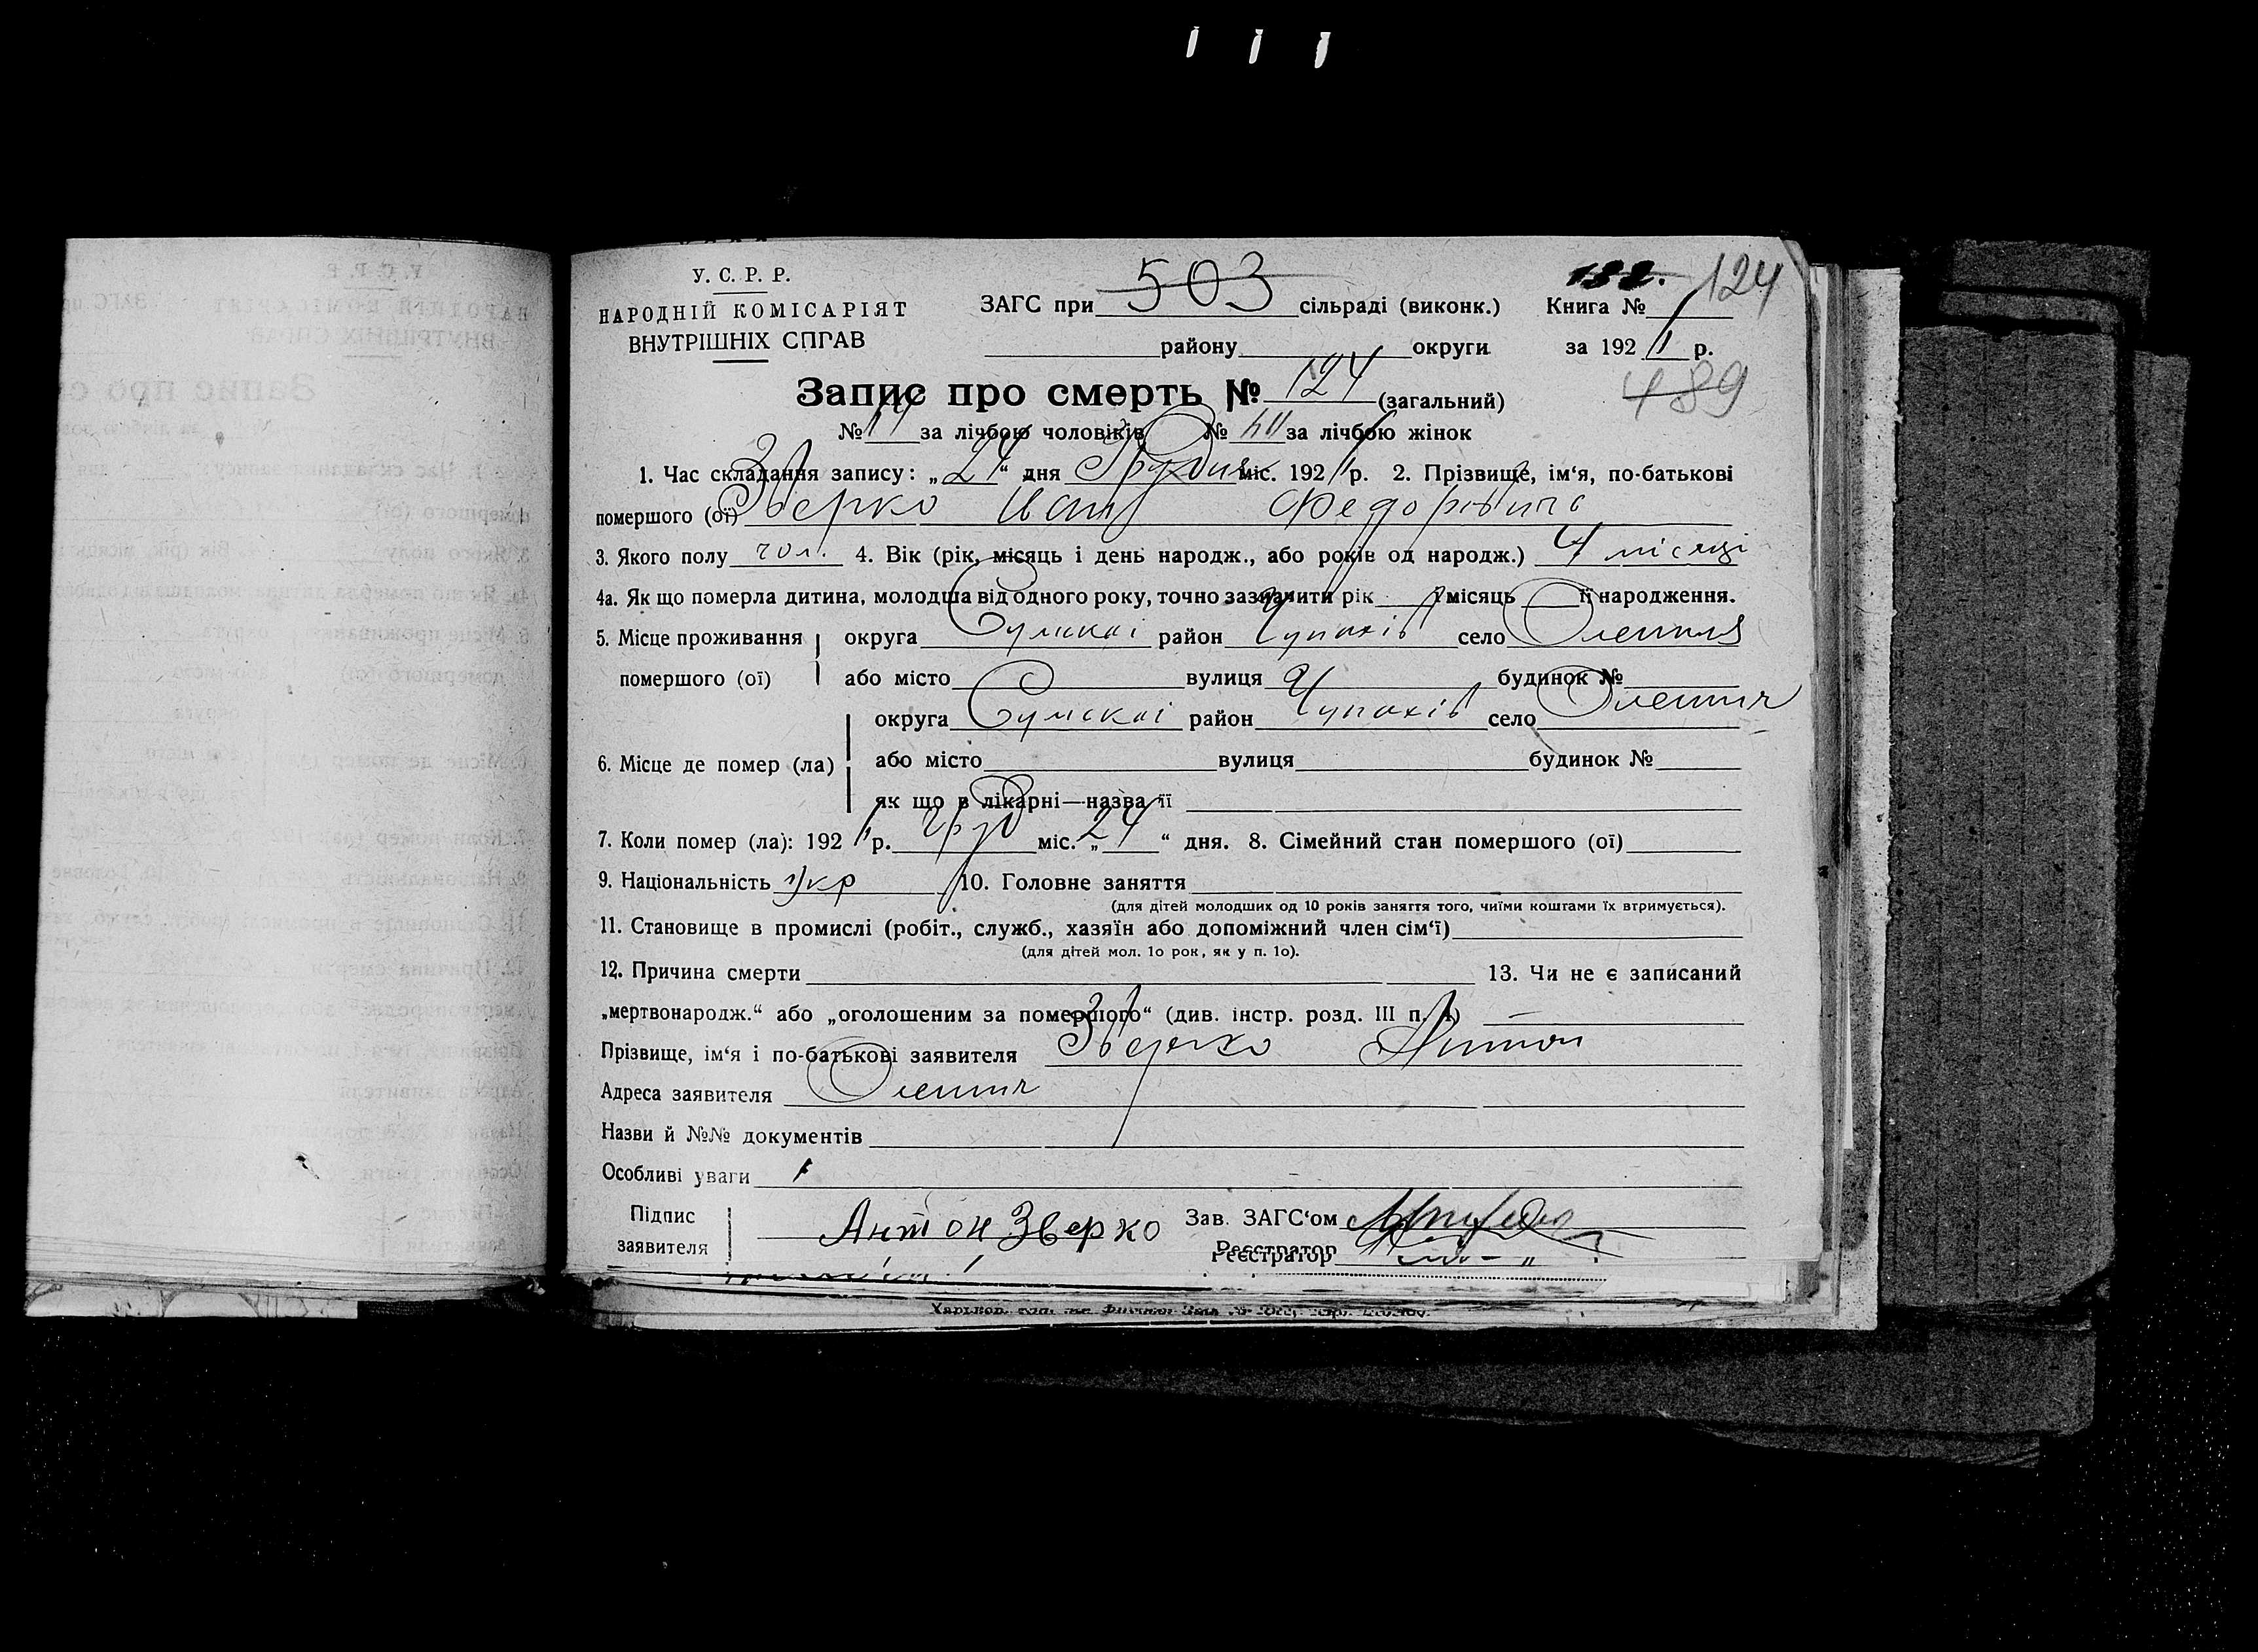 У. С. Р. Р.
НАРОДНІЙ КОМІСАРІЯТ
ВНУТРІШНІХ СПРАВ
ЗАГС при 503 сільраді (виконк.) Книга № 124
району округи за 192 1 р.
489
Запис про смерть № 124 (загальний)
№ за лічбою чоловіків № за лічбою жінок
1. Час складання запису: „24“ дня Грудня міс. 192 р. 2. Прізвище, ім‘я, по-батькові
помершого (ої) Зверко Іван Федорович
3. Якого полу чол. 4. Вік (рік, місяць і день народж., або років од народж.) 4 місяці
4а. Як що померла дитина, молодша від одного року, точно зазначити рік місяць її народження.
5. Місце проживання помершого (ої)
округа Сумскої район Чупахів село Олешня
або місто вулиця будинок №
6. Місце де помер (ла)
округа Сумскої район Чупахів село Олешня
або місто вулиця будинок №
як що в лікарні—назва її
7. Коли помер (ла): 192 р. груд міс. „24“ дня. 8. Сімейний стан помершого (ої)
9. Національність укр 10. Головне заняття
(для дітей молодших од 10 років заняття того, чиїми коштами їх втримується).
11. Становище в промислі (робіт., служб., хазяїн або допоміжний член сім‘ї)
(для дітей мол. 1о рок, як у п. 1о).
12. Причина смерти 13. Чи не є записаний
„мертвонародж.“ або „оголошеним за помершого“ (див. інстр. розд. III п. 4) —
Прізвище, ім‘я і по-батькові заявителя Зверко Антон
Адреса заявителя Олешня
Назви й №№ документів
Особливі уваги
Підпис заявителя Антон Зверко Зав. ЗАГС‘ом
Реєстратор